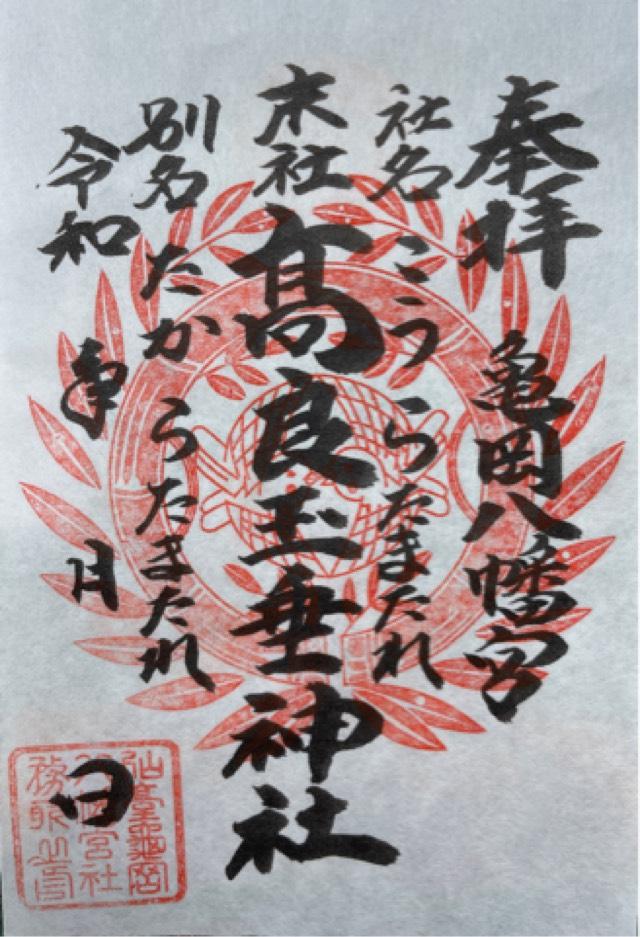 奉拝
亀岡八幡宮
社名 こうらたまたれ
末社
髙良玉垂神社
別名 たからうたまたれ
令和 年 月 日
仙臺龜岡
八幡宮社
務所之印